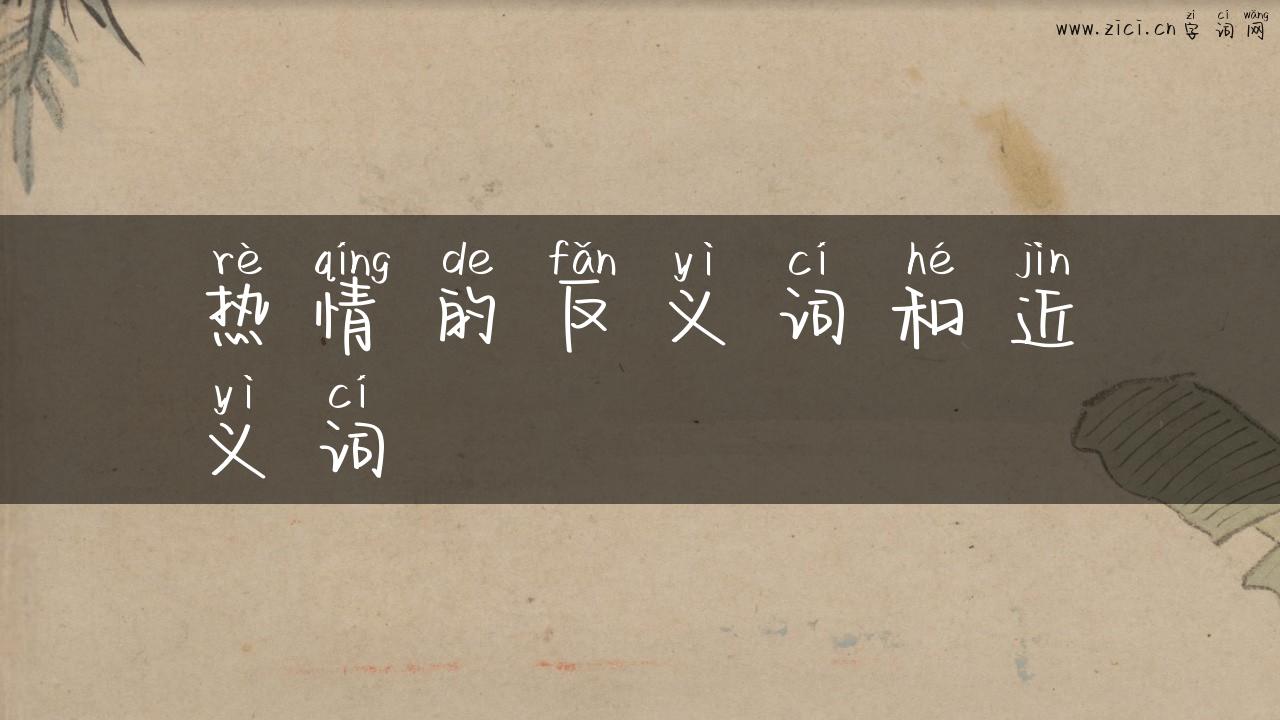 zì cí wǎng
www.zici.cn 字词网
rè qíng de fǎn yì cí hé jìn
热情的反义词和近
yì cí
义词